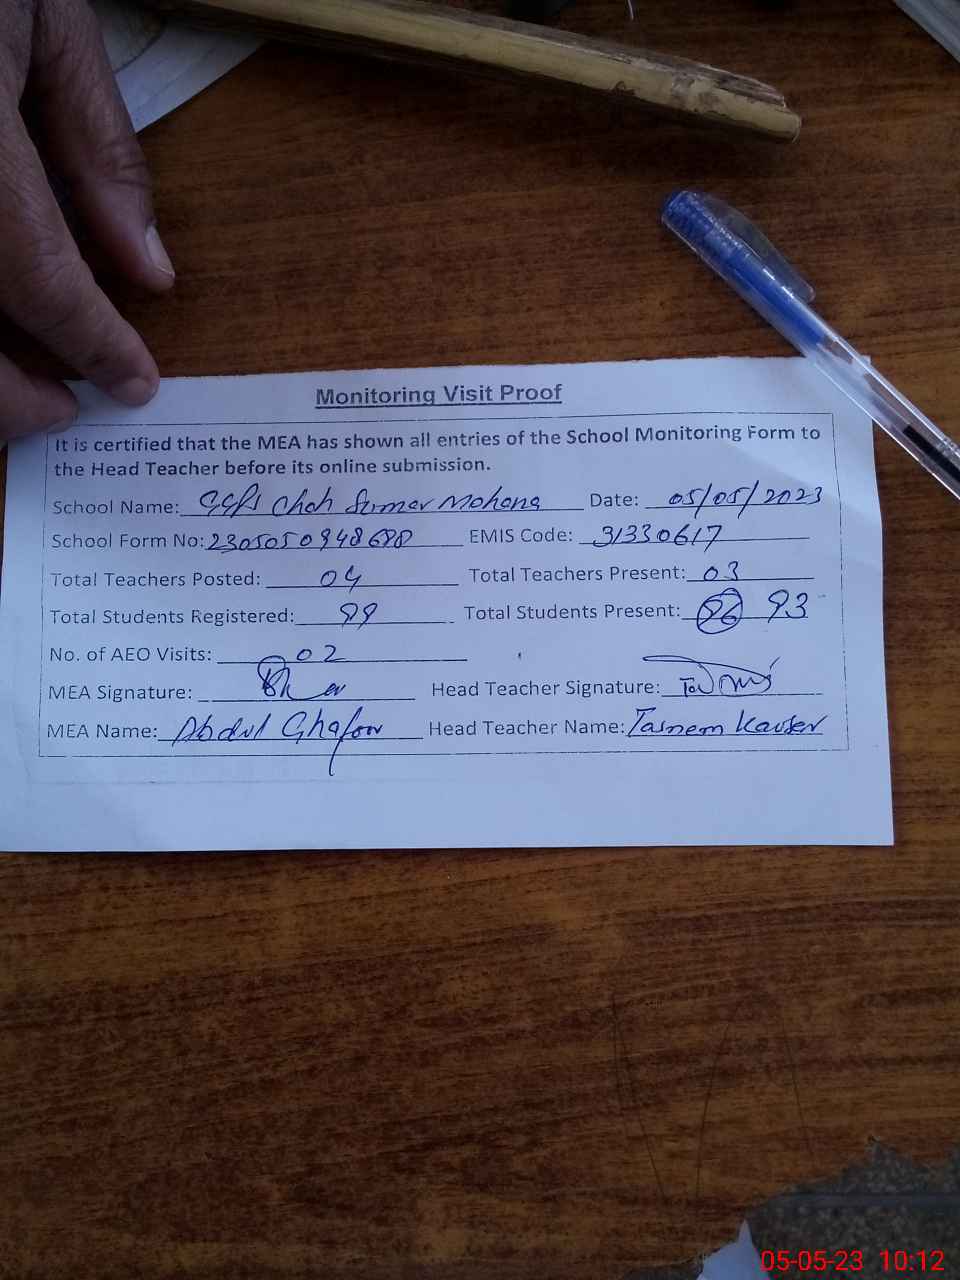 Monitoring Visit Proof
It is certified that the MEA has shown all entries of the School Monitoring Form to
the Head Teacher before its online submission.
School Name: GGPS Chah Sumar Mohana Date: 05/05/2023
School Form No: 2305050948688 EMIS Code: 31330617
Total Teachers Posted: 04 Total Teachers Present: 03
Total Students Registered: 99 Total Students Present: 96 93
No. of AEO Visits: 02
MEA Signature: Head Teacher Signature:
MEA Name: Abdul Ghafoor Head Teacher Name: Tasneem Kauser
05-05-23 10:12